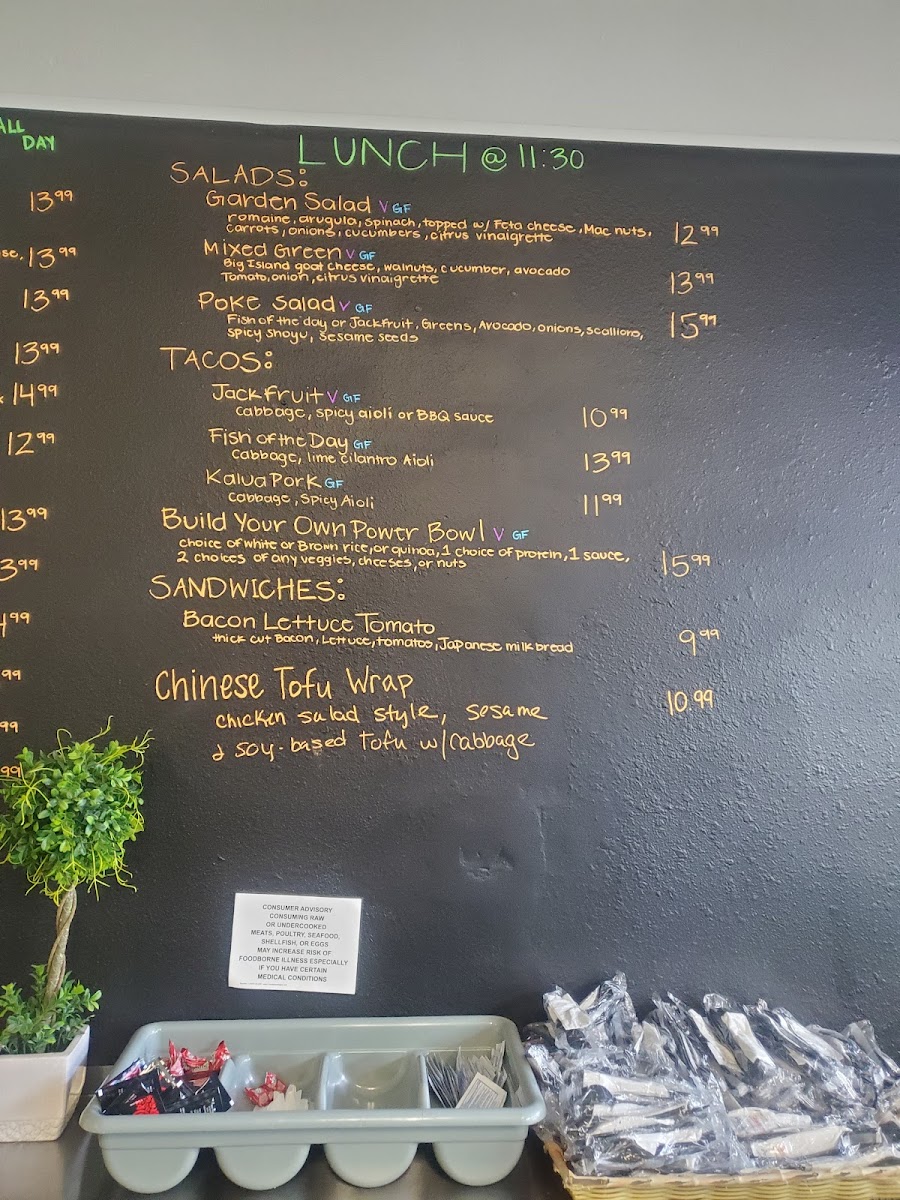 ALL
DAY
13.99
se, 13.99
13.99
13.99
14.99
12.99
13.99
3.99
4.99
99
99
99
LUNCH @ 11:30
SALADS:
Garden Salad V GF
romaine, arugula, spinach, topped w/ Feta cheese, Mac nuts,
carrots, onions, cucumbers, citrus vinaigrette 12.99
Mixed Green V GF
Big Island goat cheese, walnuts, cucumber, avocado
Tomato, onion, citrus vinaigrette 13.99
Poke Salad V GF
Fish of the day or Jackfruit, Greens, Avocado, onions, scallions,
spicy shoyu, sesame seeds 15.99
TACOS:
Jackfruit V GF
cabbage, spicy aioli or BBQ sauce 10.99
Fish of the Day GF
cabbage, lime cilantro Aioli 13.99
Kalua Pork GF
cabbage, Spicy Aioli 11.99
Build Your Own Power Bowl V GF
choice of white or Brown rice, or quinoa, 1 choice of protein, 1 sauce,
2 choices of any veggies, cheeses, or nuts 15.99
SANDWICHES:
Bacon Lettuce Tomato
thick cut Bacon, Lettuce, tomatos, Japanese milk bread 9.99
Chinese Tofu Wrap 10.99
chicken salad style, sesame
& soy-based Tofu w/cabbage
CONSUMER ADVISORY
CONSUMING RAW
OR UNDERCOOKED
MEATS, POULTRY, SEAFOOD,
SHELLFISH, OR EGGS
MAY INCREASE RISK OF
FOODBORNE ILLNESS ESPECIALLY
IF YOU HAVE CERTAIN
MEDICAL CONDITIONS